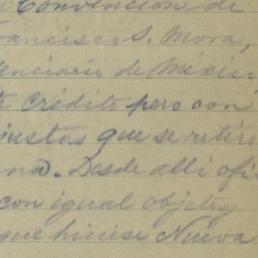 Convención de
Francisco S. Mora,
enciario de México
crédito pero con
justas que se retiró
na). Desde alli ofi
con igual objeto y
que hiciese Nueva